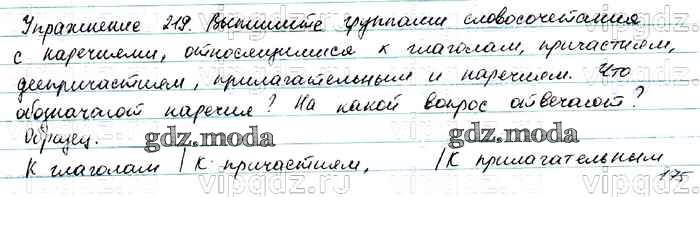 Упражнение 219. Выпишите группами словосочетания
с наречиями, относящимися к глаголам, причастиям,
деепричастиям, прилагательным и наречиям. Что
обозначают наречия? На какой вопрос отвечают?
Образец.
gdz.moda gdz.moda
К глаголам / К причастиям, / К прилагательным
175
vipgdz.ru vipgdz.ru